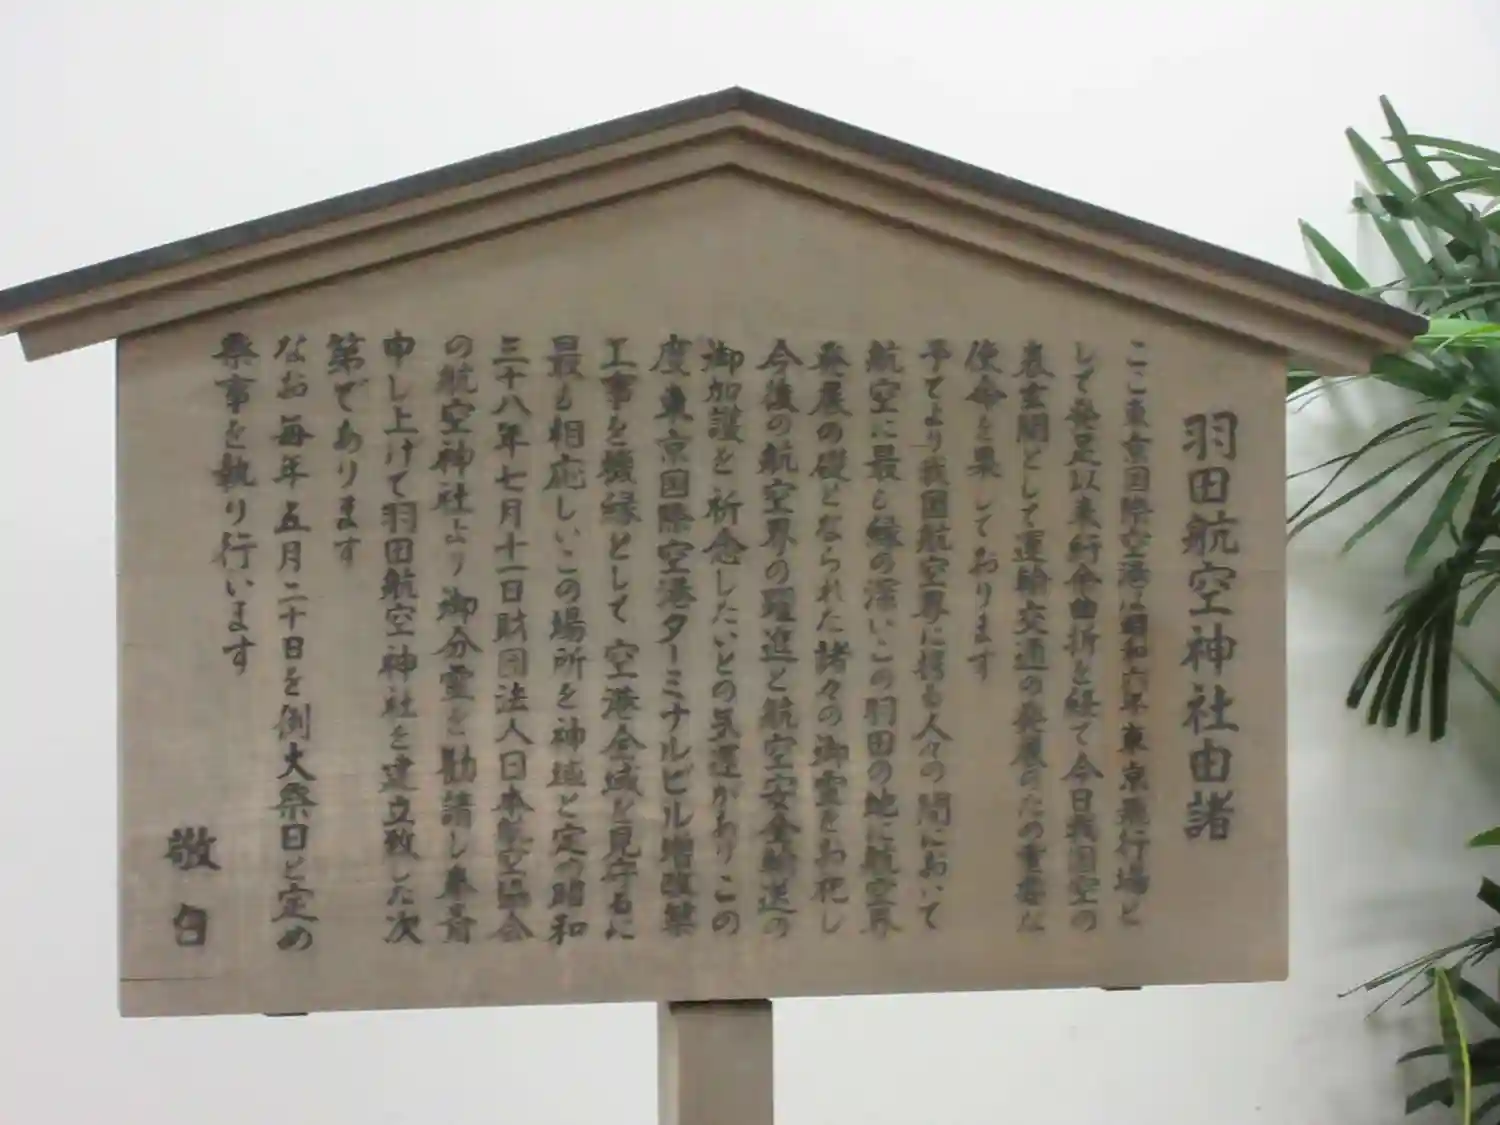 羽田航空神社由諸
ここ東京国際空港は昭和六年東京飛行場と
して発足以来紆余曲折を経て今日我国空の
表玄関として運輸交通の発展のための重要な
使命を果しております
予てより我国航空界に携る人々の間において
航空に最も縁の深いこの羽田の地に航空界
発展の礎となられた諸々の御霊をお祀し
今後の航空界の躍進と航空安全輸送の
御加護を祈念したいとの気運がありこの
度東京国際空港ターミナルビル増改築
工事を機縁として空港全域を見守るに
最も相応しいこの場所を神域と定め昭和
三十八年七月十一日財団法人日本航空協会
の航空神社より御分霊を勧請し奉斎
申し上げて羽田航空神社を建立致した次
第であります
なお毎年五月二十日を例大祭日と定め
祭事を執り行います
敬白